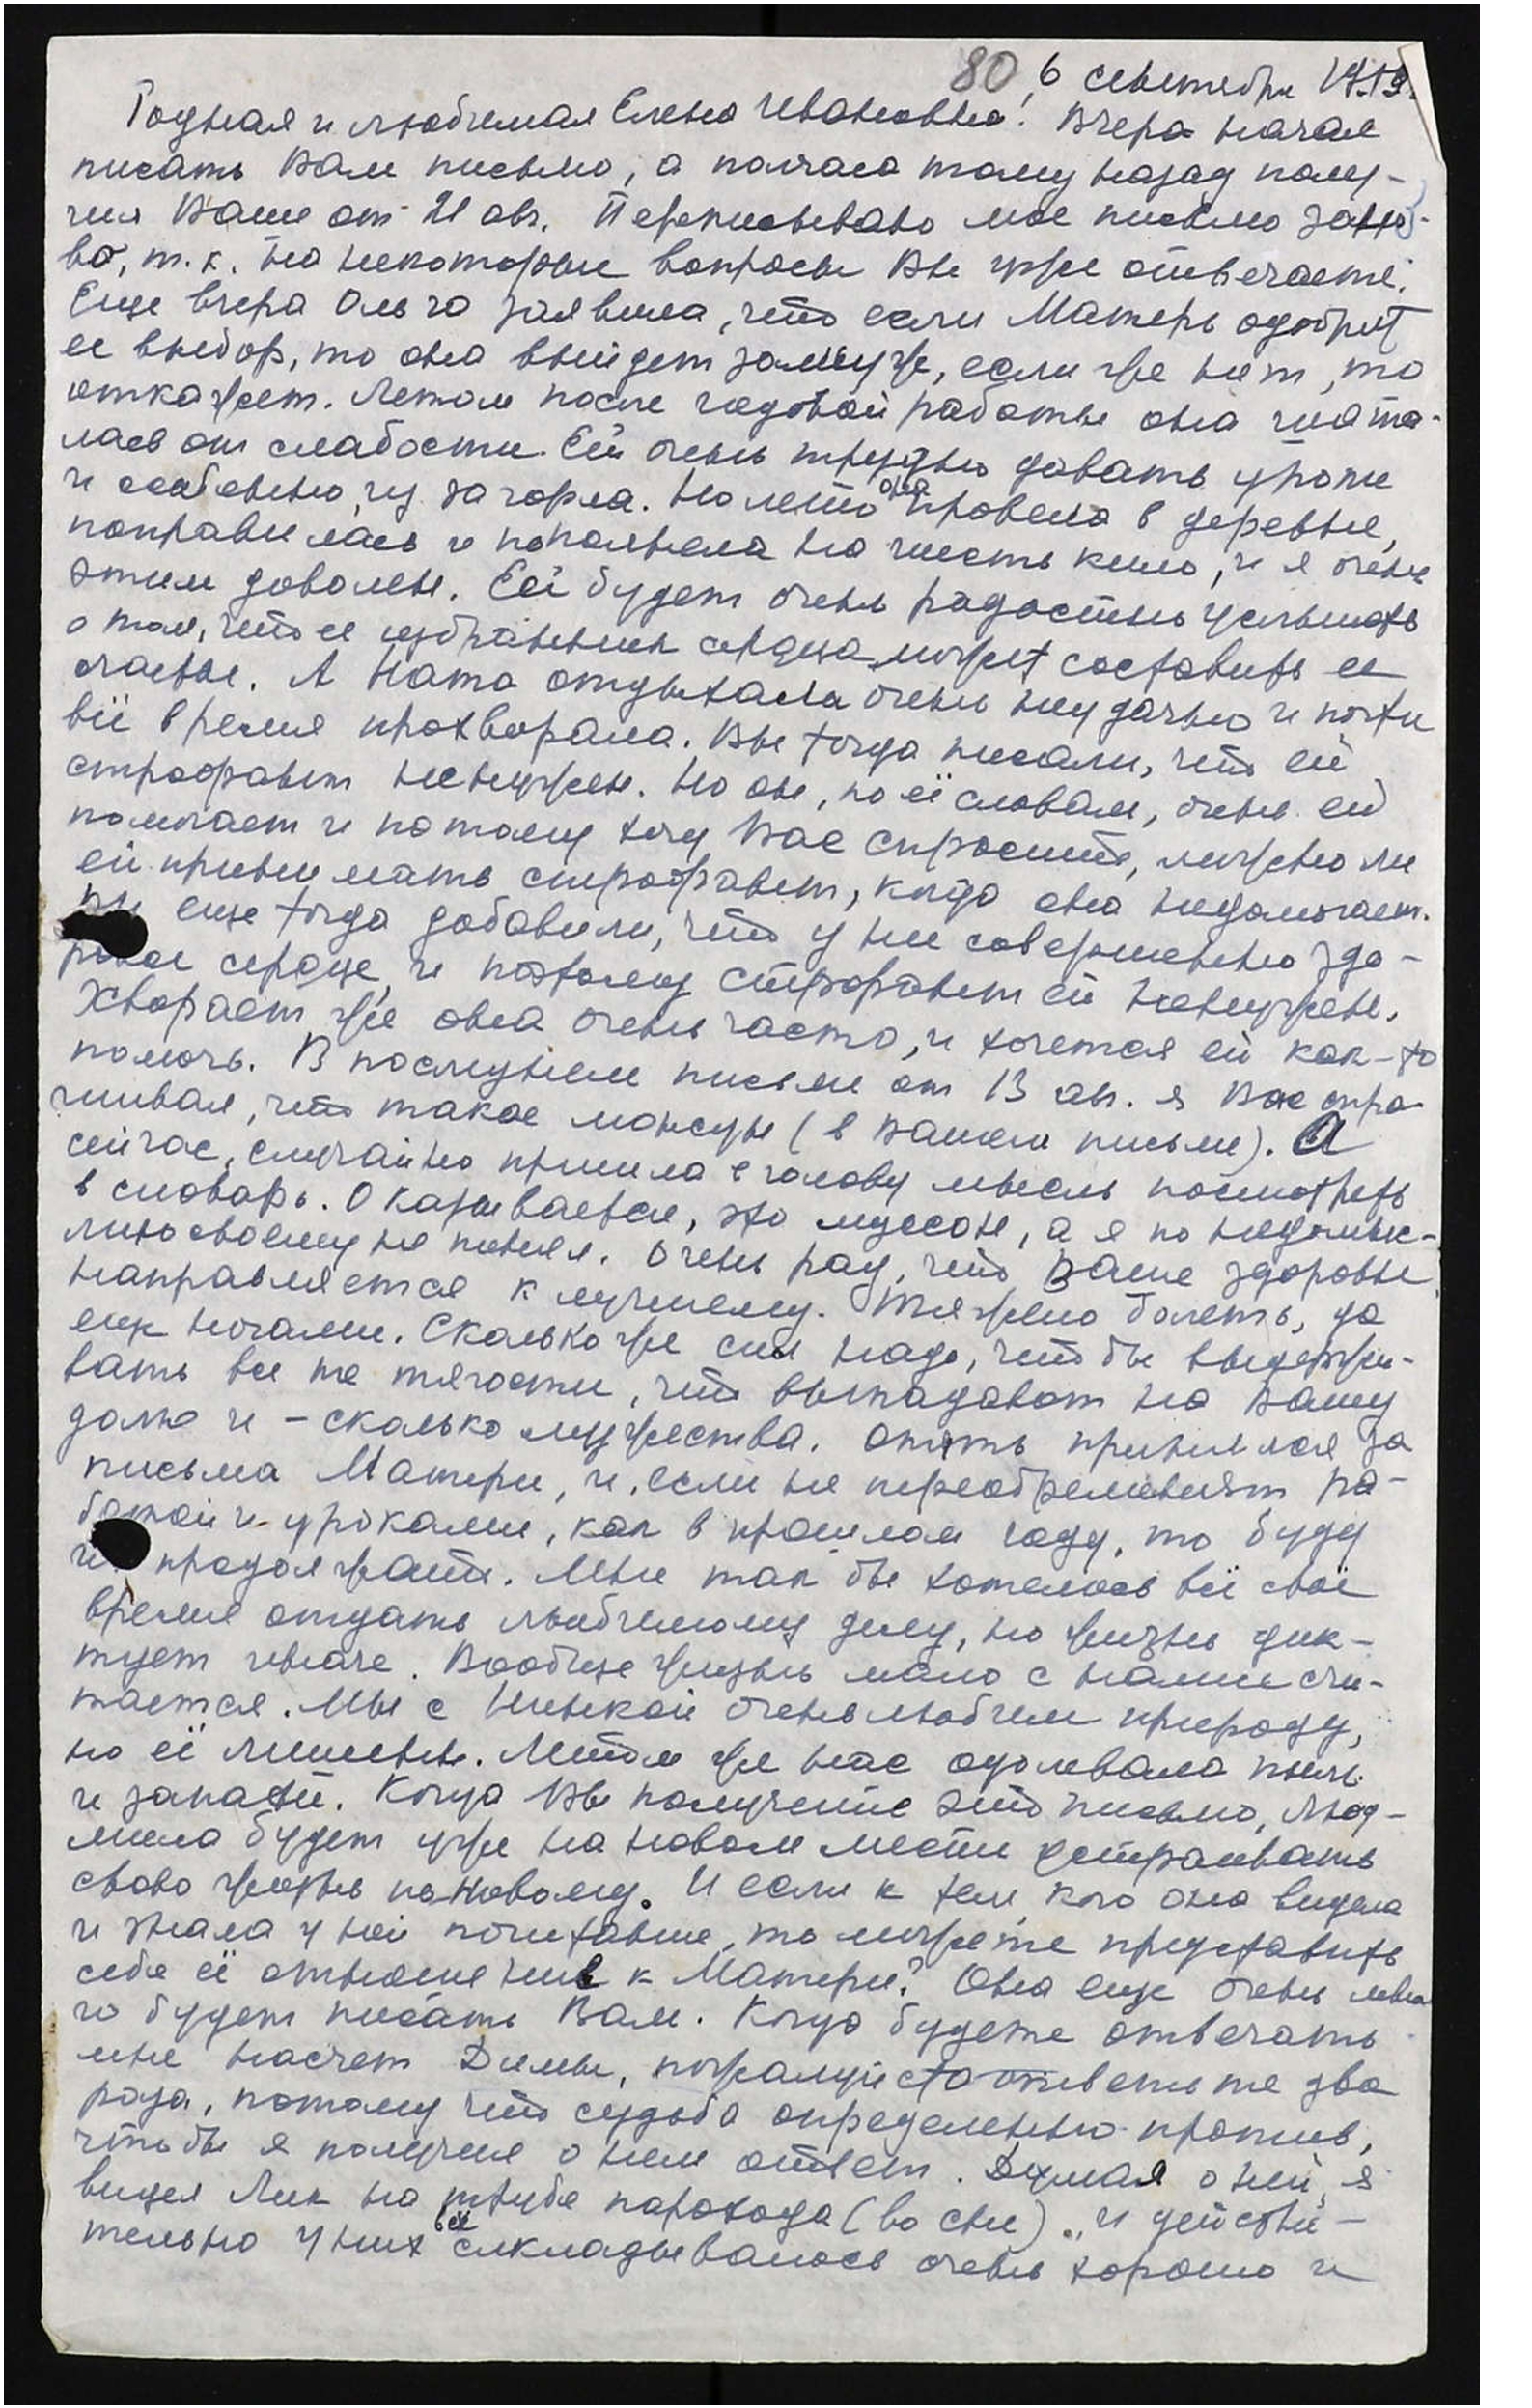 80 6 сентября
Родная и любимая Елена Ивановна! Вчера начал
писать Вам письмо, а полчаса тому назад полу-
чил Ваше от 21 авг. Переписываю мое письмо зано-
во, т.к. на некоторые вопросы Вы уже отвечаете.
Еще вчера Ольга заявила, что если Матерь одобрит
ее выбор, то она выйдет замуж, если же нет, то
откажет. Летом после годовой работы она шата-
лась от слабости. Ей очень трудно давать уроки
и особенно из за горла. Но лето она провела в деревне,
поправилась и пополнела на шесть кило, и я очень
этим доволен. Ей будет очень радостно услышать
о том, что ее избранник сердца может составить ее
счастье. А Ната отдыхала очень неудачно и почти
всё время прохворала. Вы тогда писали, что ей
строфант не нужен. Но он, по её словам, очень ей
помогает и потому хочу Вас спросить, можно ли
ей принимать строфант, когда она недомогает.
Вы еще тогда добавили, что у нее совершенно здо-
ровое сердце и поэтому строфант ей не нужен.
Хворает же она очень часто, и хочется ей как-то
помочь. В последнем письме от 13 авг. я Вас спра-
шивал, что такое монсун (в Вашем письме). А
сейчас, случайно пришла в голову мысль посмотреть
в словарь. Оказывается, это муссон, а я по недомыс-
лию своему не понял. Очень рад, что Ваше здоровье
направляется к лучшему. Тяжело болеть, да
еще ногами. Сколько же сил надо, чтобы выдержи-
вать все те тягости, что выпадают на Вашу
долю и - сколько мужества. Опять принялся за
письма Матери, и, если не переобременят ра-
ботой и уроками, как в прошлом году, то буду
их продолжать. Мне так бы хотелось всё своё
время отдать любимому делу, но жизнь дик-
тует иначе. Вообще жизнь мало с нами счи-
тается. Мы с Нинкой очень любим природу,
но её лишены. Летом же нас одолевала пыль
и запахи. Когда Вы получите это письмо, Люд-
мила будет уже на новом месте устраивать
свою жизнь по новому. И если к тем, кого она видела
и знала у ней почитание, то можете представить
себе её отношение к Матери? Она еще очень мно
го будет писать Вам. Когда будете отвечать
мне насчет Димы, пожалуйста ответьте два
раза, потому что судьба определенно против,
чтобы я получил о нем ответ. Думая о ней, я
видел Лик на трубе парохода (во сне), и действи-
тельно у них всё складывалось очень хорошо и